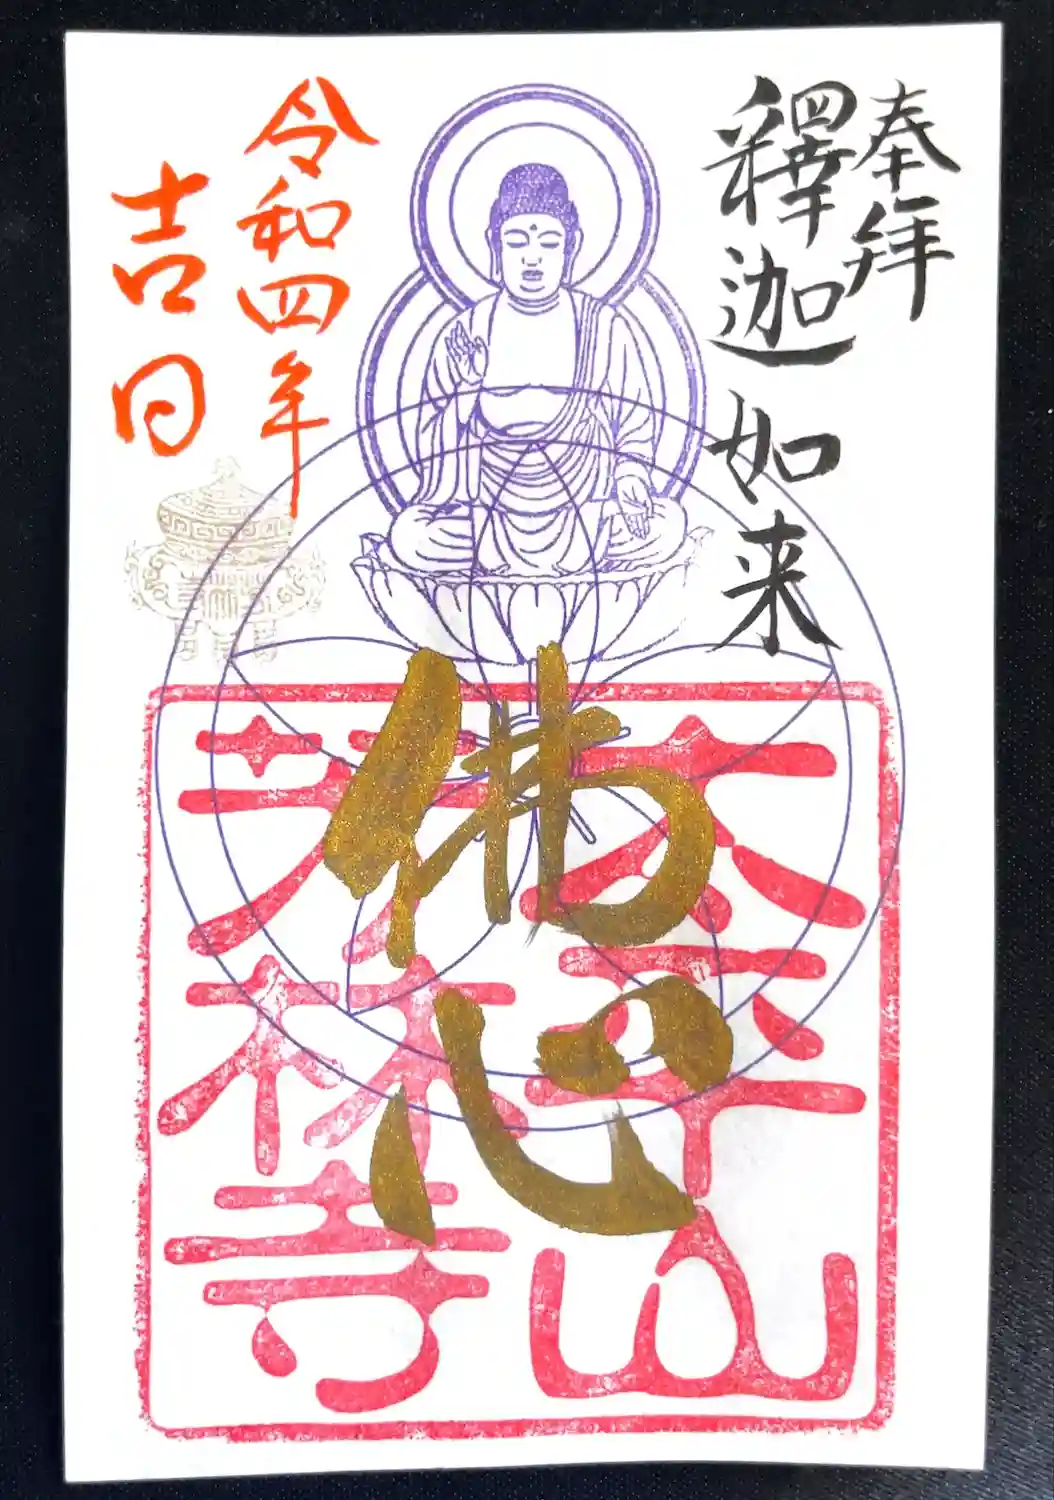 奉拝
釋迦如来
佛心
令和四年
吉日
太平山
芳林寺